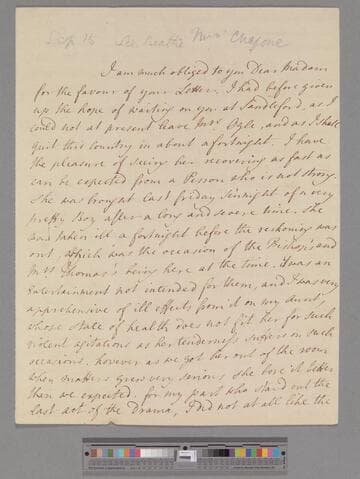 Mrs Chapone
I am much obliged to you Dear Madam
for the favour of your Letter. I had before given
up the hope of waiting on you at Sandleford, as I
could not at present leave Mrs Ogle, and as I shall
quit this Country in about a fortnight. I have
the pleasure of seeing her recovering as fast as
can be expected from a Person who is not strong.
She was brought last friday sennight of a very
pretty Boy after a long and severe time. She
was taken ill a fortnight before the reckoning was
out, which was the occasion of the Bishop's and
Mrs Thomas's being here at the time. It was an
Entertainment not intended for them, and I was very
apprehensive of ill effects from it on my Aunt,
whose state of health does not fit her for such
violent agitations as her tenderness suffers on such
occasions. however as we got her out of the room
when matters grew very serious she bore it better
than we expected. for my part who stand out the
last act of the Drama, I did not at all like the